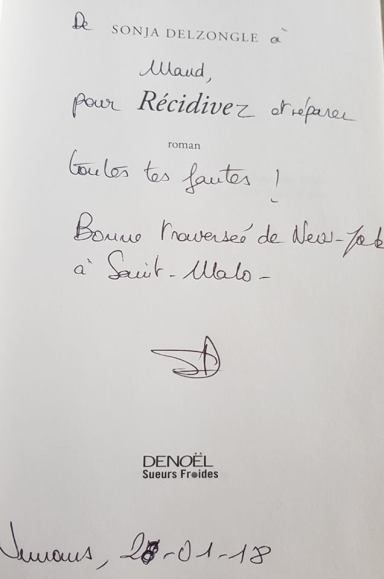 De SONJA DELZONGLE à
Maud,
pour Récidivez et réparer
toutes tes fautes !
Bonne traversée de New-York
à Saint-Malo-
DENOËL
Sueurs Froides
roman